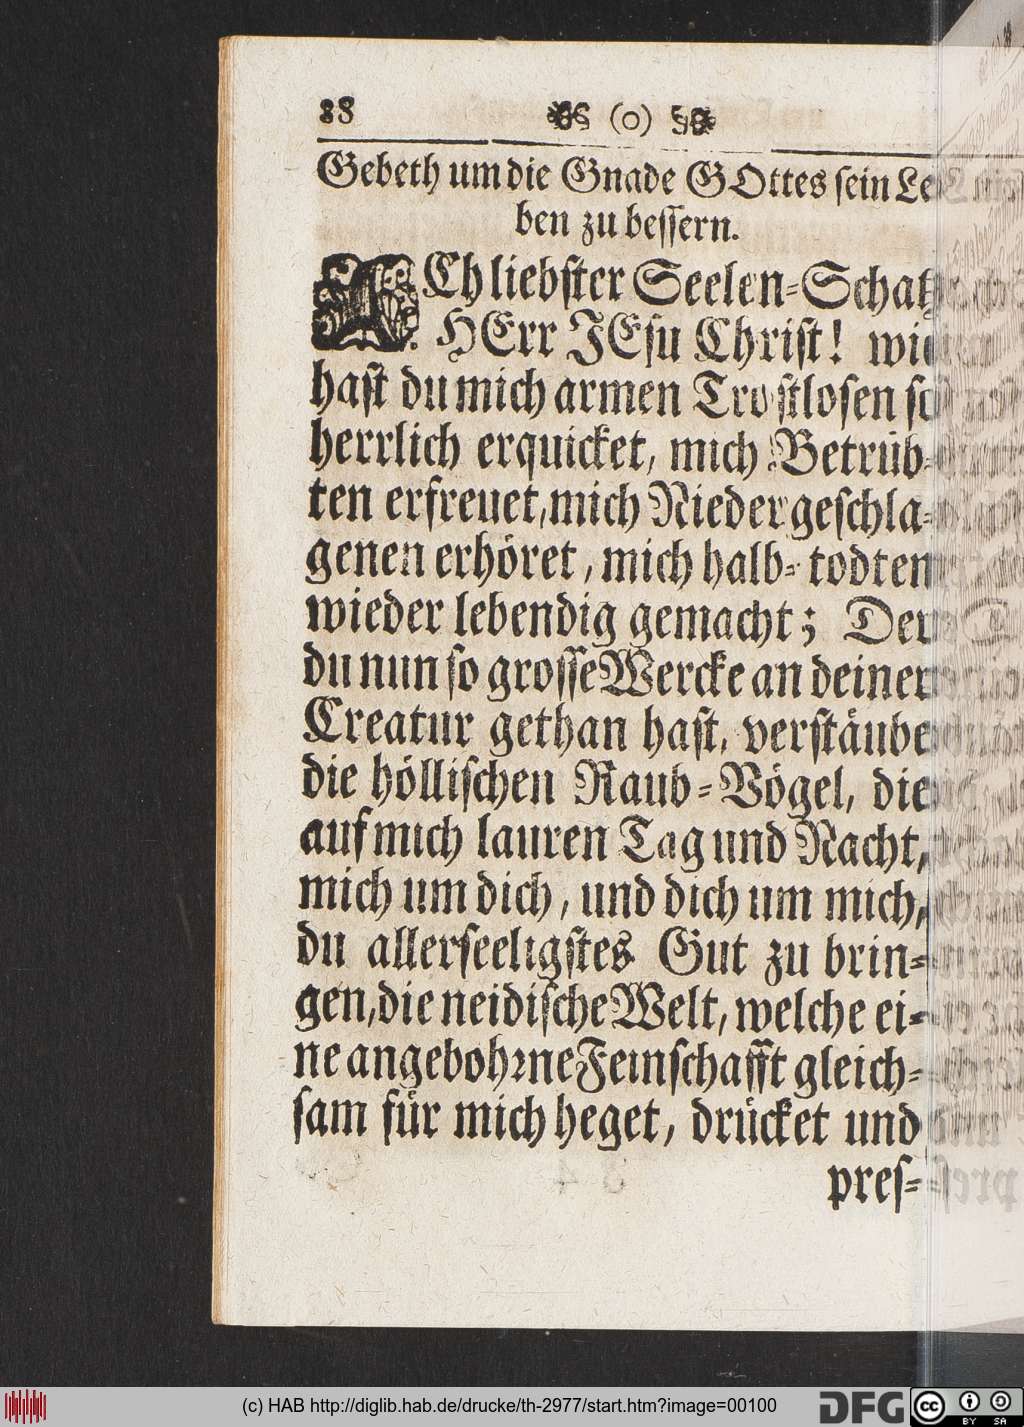 88 (o)
Gebeth um die Gnade GOttes sein Le-
ben zu bessern.
ACh liebster Seelen-Schatz
HErr JEsu Christ! wie
hast du mich armen Trostlosen so
herrlich erquicket, mich Betrüb-
ten erfreuet, mich Niedergeschla-
genen erhöret, mich halb-todten
wieder lebendig gemacht; Der
du nun so grosse Wercke an deiner
Creatur gethan hast, verstäube
die höllischen Raub-Vögel, die
auf mich lauren Tag und Nacht,
mich um dich, und dich um mich,
du allerseeligstes Gut zu brin-
gen, die neidische Welt, welche ei-
ne angebohrne Feinschafft gleich-
sam für mich heget, drücket und
pres-
(c) HAB http://diglib.hab.de/drucke/th-2977/start.htm?image=00100
DFG
cc BY SA